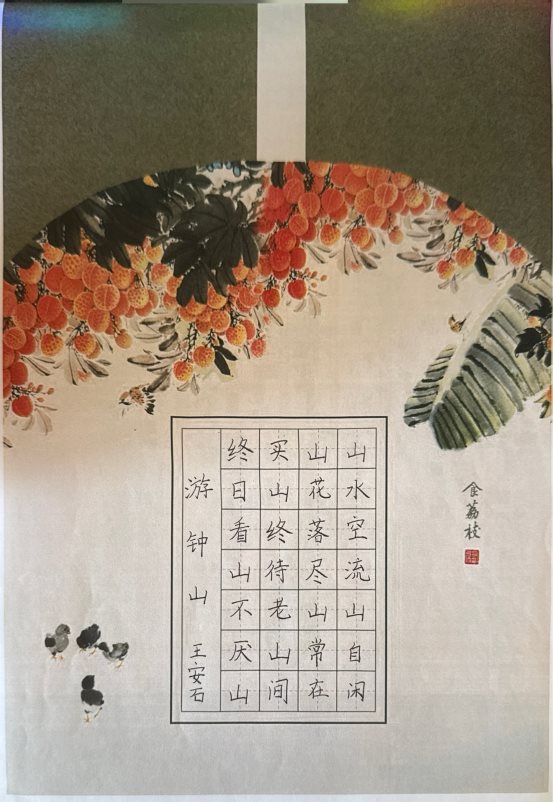 游钟山
王安石
终日看山不厌山
买山终待老山间
山花落尽山常在
山水空流山自闲
食荔枝